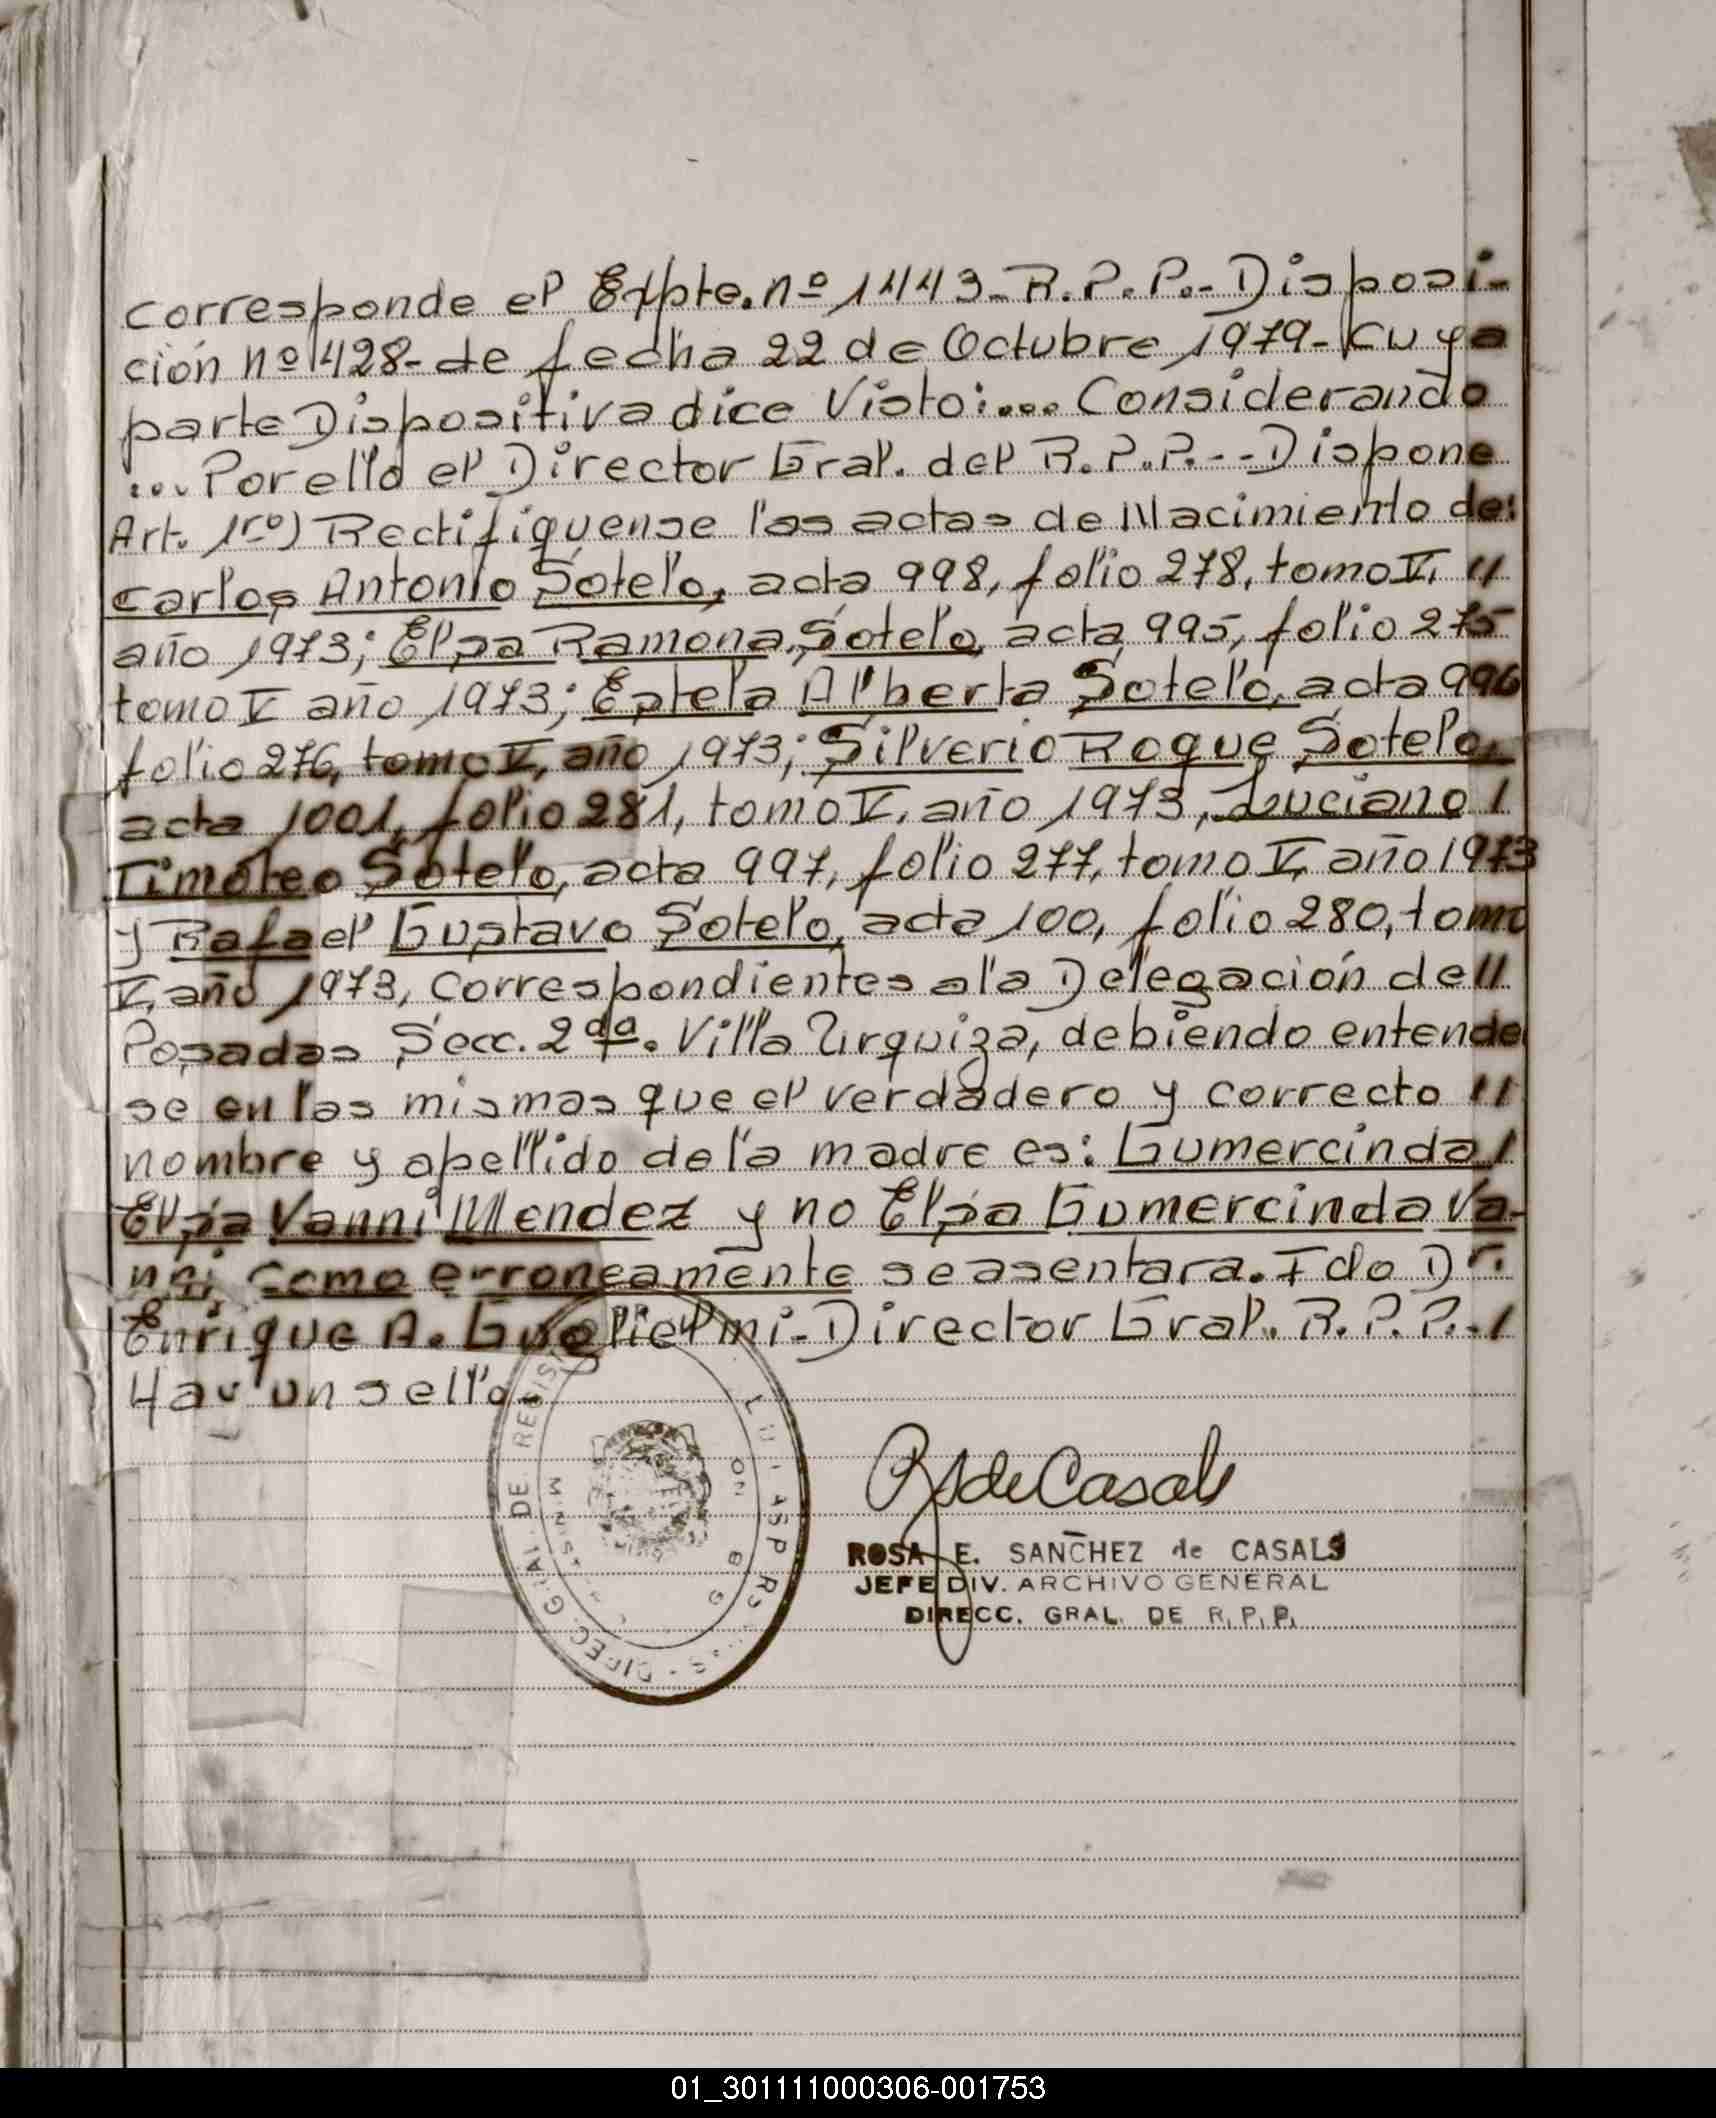 corresponde el Expte. nº 1443-R.P.P.- Disposi-
ción nº 1428- de fecha 22 de Octubre 1979- cuya
parte Dispositiva dice Visto:... Considerando
... Por ello el Director Gral. del R.P.P.-- Dispone
Art. 1rº) Rectifiquense las actas de Nacimiento de:
Carlos Antonio Sotelo, acta 998, folio 278, tomo V. //
año 1973; Elsa Ramona Sotelo, acta 995, folio 275
tomo V año 1973; Estela Alberta Sotelo, acta 996
folio 276, tomo V, año 1973; Silverio Roque Sotelo,
acta 1001, folio 281, tomo V, año 1973, Luciano /
Timoteo Sotelo, acta 997, folio 277, tomo V, año 1973
y Rafael Gustavo Sotelo, acta 100, folio 280, tomo
V, año 1973, correspondientes a la Delegación de //
Posadas Secc. 2da. Villa Urquiza, debiendo entende
se en las mismas que el verdadero y correcto //
nombre y apellido de la madre es: Gumercinda /
Elsa Vanni Mendez y no Elsa Gumercinda Va-
nni como erroneamente se asentara. Fdo Dr.
Enrique A. Guglielmi - Director Gral. R.P.P.-/
Hay un sello.
DIREC. GRAL. DE REGIS
RdeCasals
ROSA E. SANCHEZ de CASALS
JEFE DIV. ARCHIVO GENERAL
DIRECC. GRAL. DE R.P.P.
01_301111000306-001753